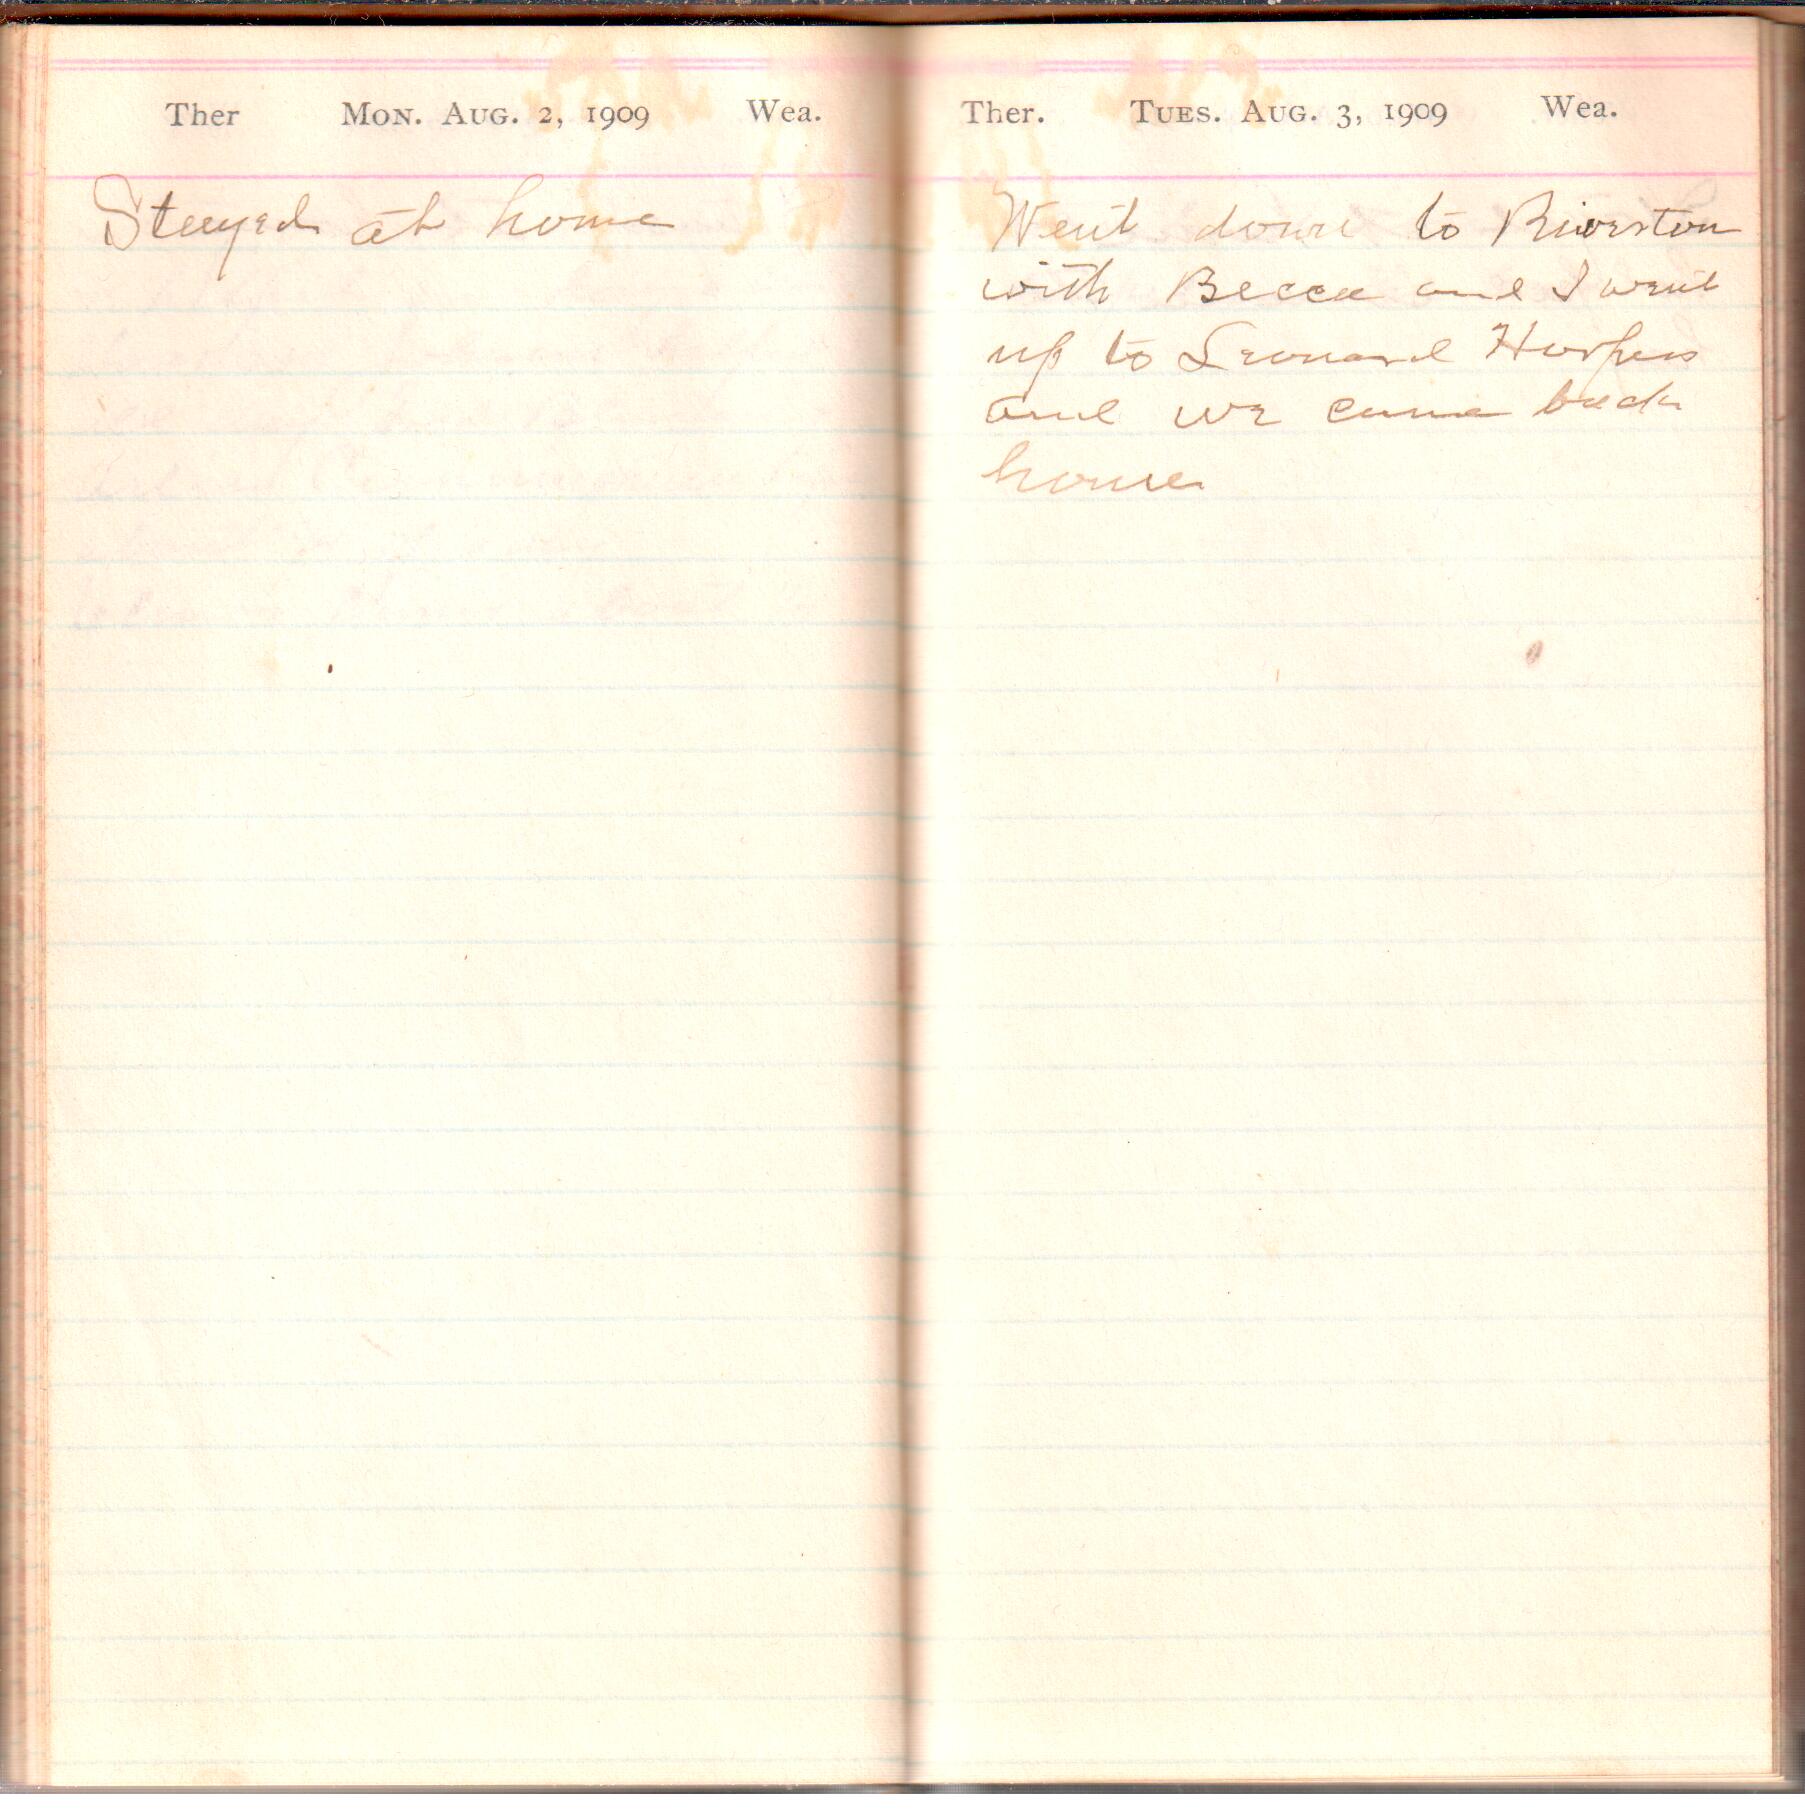 Ther Mon. Aug. 2, 1909 Wea.
Stayed at home
Ther. Tues. Aug. 3, 1909 Wea.
Went down to Riverton
with Becca and I went
up to Leonard Harpers
and we came back
home